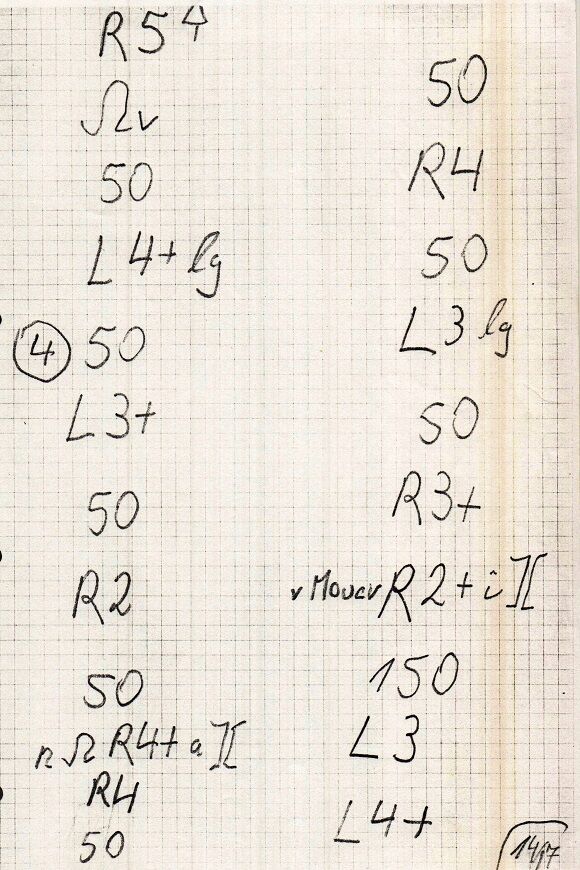 R5
Ωv
50
L4+ lg
④ 50
L3+
50
R2
50
n Ω R4+ a ][
R4
50
50
R4
50
L3 lg
50
R3+
v Mauer R2+ i ][
150
L3
L4+